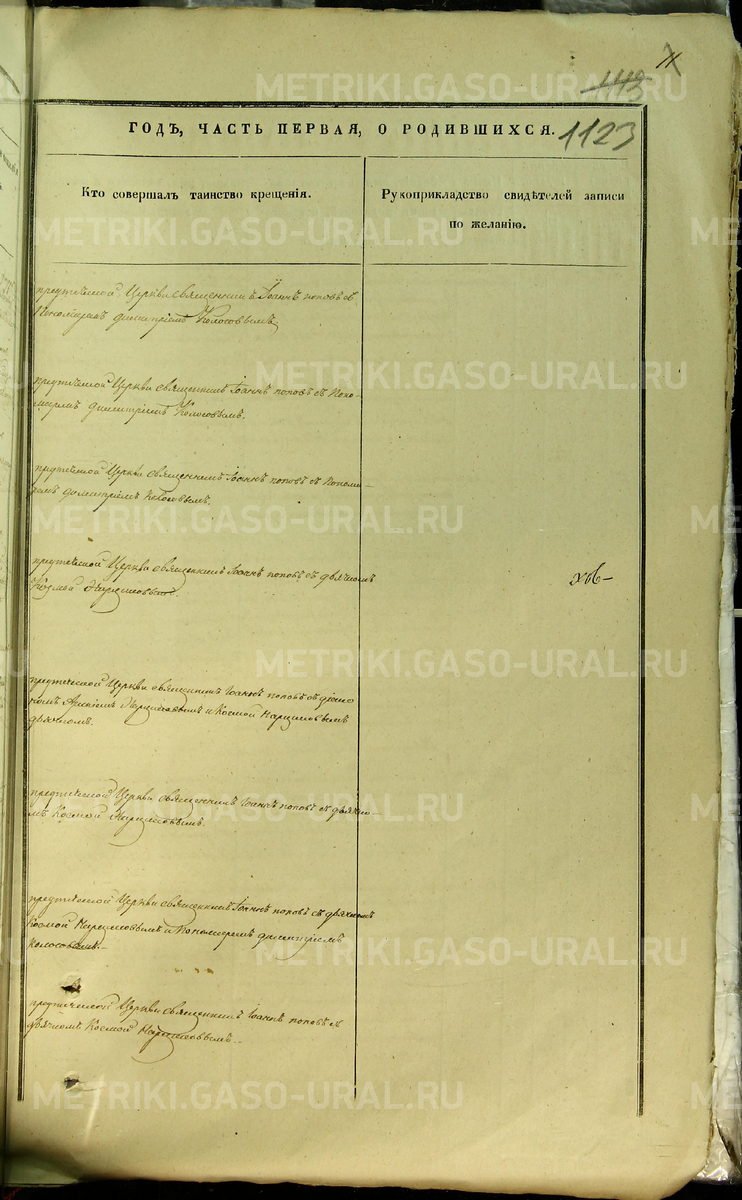 11
1113
1123
ГОДЪ, ЧАСТЬ ПЕРВАЯ, О РОДИВШИХСЯ.
Кто совершалъ таинство крещенія.
Рукоприкладство свидѣтелей записи
по желанію.
предтечской Церкви священникъ Іоаннъ поповъ съ
Пономаремъ димитріемъ Колосовымъ
предтечской Церкви священникъ Іоаннъ поповъ съ Поно-
маремъ димитріемъ Колосовымъ.
предтечской Церкви священникъ Іоаннъ поповъ съ Понома-
ремъ димитріемъ Колосовымъ.
предтечской Церкви священникъ Іоаннъ поповъ съ дьячкомъ
Козмой
предтечской Церкви священникъ Іоаннъ поповъ съ діако
номъ и Космой
дьячкомъ.
предтечской Церкви священникъ Іоаннъ поповъ съ дьячко-
мъ Космой
предтечской Церкви священникъ Іоаннъ поповъ съ дьячкомъ
Космой и Пономаремъ димитріемъ
Колосовымъ.-
предтечской Церкви священникъ Іоаннъ поповъ съ
дьячкомъ Космой
METRIKI.GASO-URAL.RU